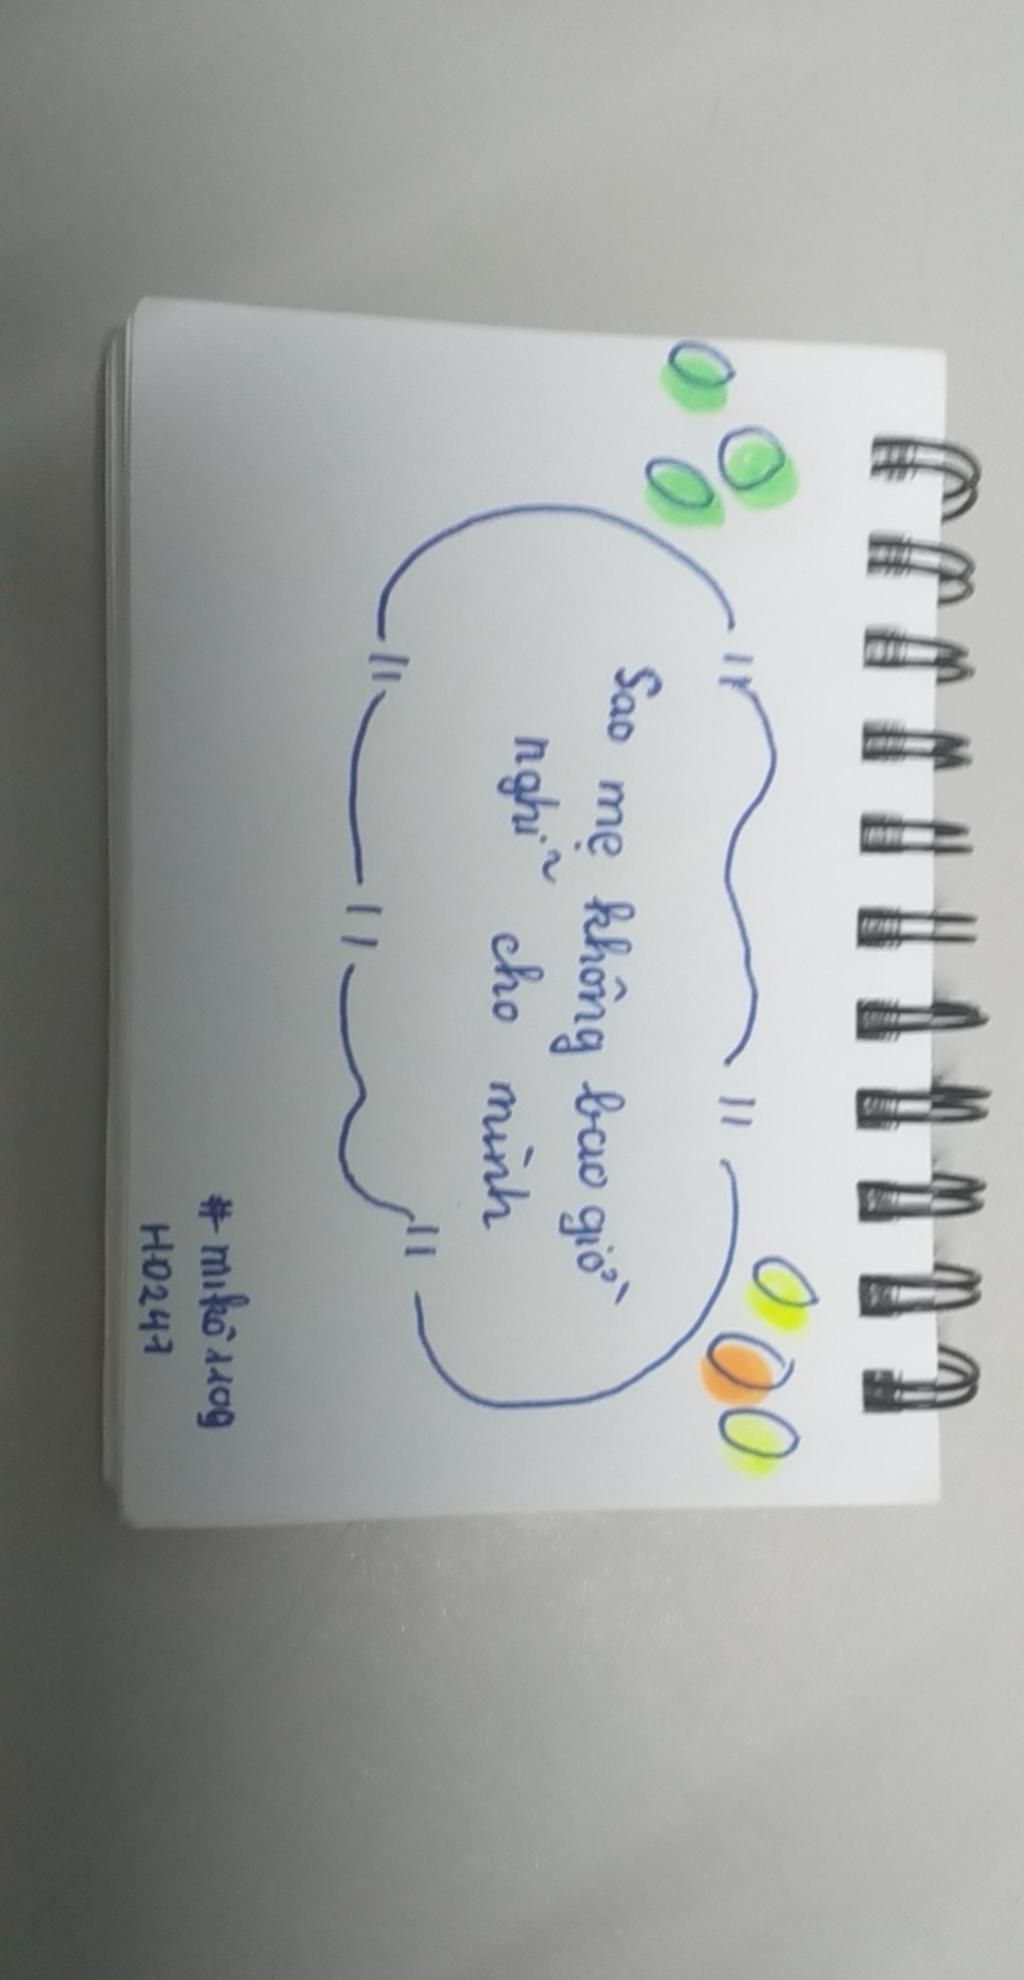 Sao mẹ không bao giờ
nghĩ cho mình
#mikô1109
H0247